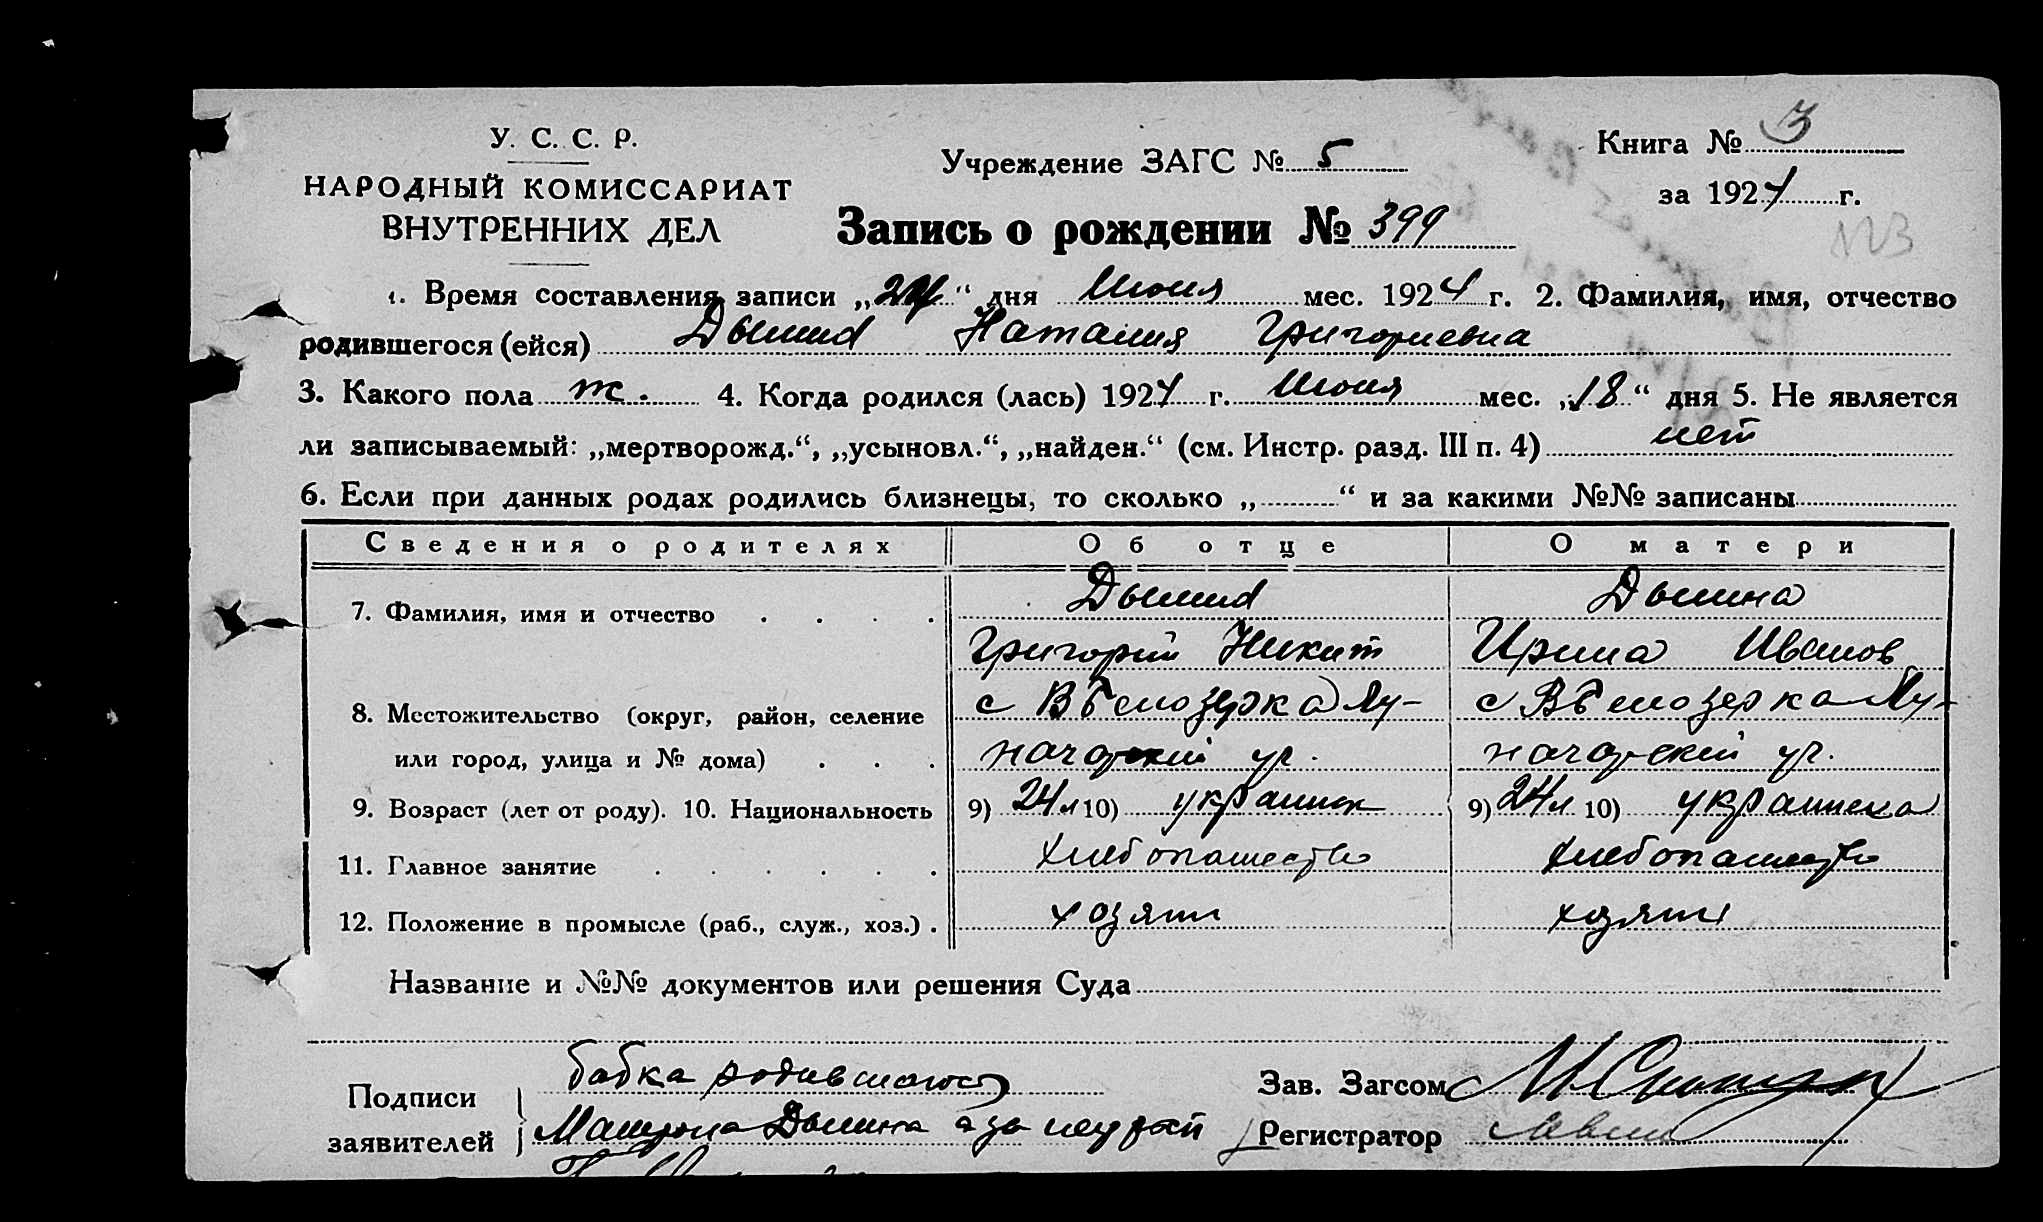 У. С. С. Р.
НАРОДНЫЙ КОМИССАРИАТ
ВНУТРЕННИХ ДЕЛ
Учреждение ЗАГС № 5
Книга № 3
за 1924 г.
Запись о рождении № 399
1. Время составления записи „24“ дня Июня мес. 1924 г. 2. Фамилия, имя, отчество
родившегося (ейся) Наталия Григориевна
3. Какого пола ж. 4. Когда родился (лась) 1924 г. Июня мес. „18“ дня 5. Не является
ли записываемый: „мертворожд.“, „усыновл.“, „найден.“ (см. Инстр. разд. III п. 4) нет
6. Если при данных родах родились близнецы, то сколько „ “ и за какими №№ записаны
Сведения о родителях Об отце О матери
7. Фамилия, имя и отчество
Григорий Никит Ирина Иванов
8. Местожительство (округ, район, селение с В Белозерка с В Белозерка
или город, улица и № дома)
9. Возраст (лет от роду). 10. Национальность 9) 24 л 10) украинец 9) 24 л 10) украинка
11. Главное занятие хлебопашество хлебопашество
12. Положение в промысле (раб., служ., хоз.) хозяин
Название и №№ документов или решения Суда
Подписи
заявителей
бабка родившагося
а за неграм
Зав. Загсом
Регистратор